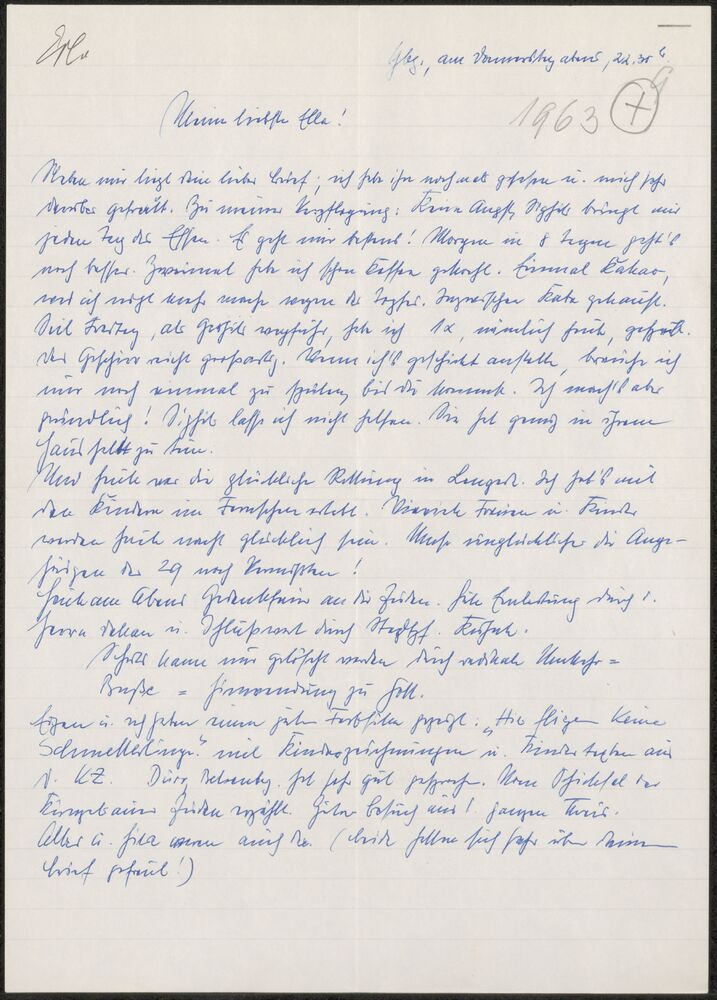 am Donnerstag abend, 22.30 h.
1963
Meine liebste Ella!
Neben mir liegt dein lieber Brief; ich habe ihn nochmals gelesen u. mich sehr
darüber gefreut. Zu meiner Verpflegung: Keine Angst, bringt mir
jeden Tag das Essen. Es geht mir bestens! Morgen in 8 Tagen geht's
noch besser. Zweimal habe ich schon Kaffee gekocht. Einmal Kakao,
weil ich nicht mehr mache wegen der Inzwischen Kaba gekauft.
Seit Freitag, als wegfuhr, habe ich 1x, nämlich heute, gespült.
Das Geschirr reicht großartig. Wenn ich's geschickt anstelle, brauche ich
nur noch einmal zu spülen, bis du kommst. Ich mach's aber
gründlich! lasse ich nicht helfen. Sie hat genug in ihrem
Haushalt zu tun.
Und heute war die glückliche Rettung in Lengede. Ich hab's mit
den Kindern im Fernsehen erlebt. Wieviele Frauen u. Kinder
werden heute nacht glücklich sein. Umso unglücklicher die Ange-
hörigen der 29 noch Vermißten!
Heute am Abend Gedenkfeier an die Juden. Gute Einleitung durch
Herrn Dekan u. Schlußwort durch Stadtpf.
Schuld kann nur gelöscht werden durch radikale Umkehr =
Buße = Hinwendung zu Gott.
u. ich haben einen guten Farbfilm gezeigt: „Hier fliegen keine
Schmetterlinge" mit Kinderzeichnungen u. Kindertexten aus
d. KZ. hat sehr gut gesprochen. Vom Schicksal der
Juden erzählt. Guter Besuch aus d. ganzen Kreis.
u. waren auch da. (beide haben sich sehr über deinen
Brief gefreut!)